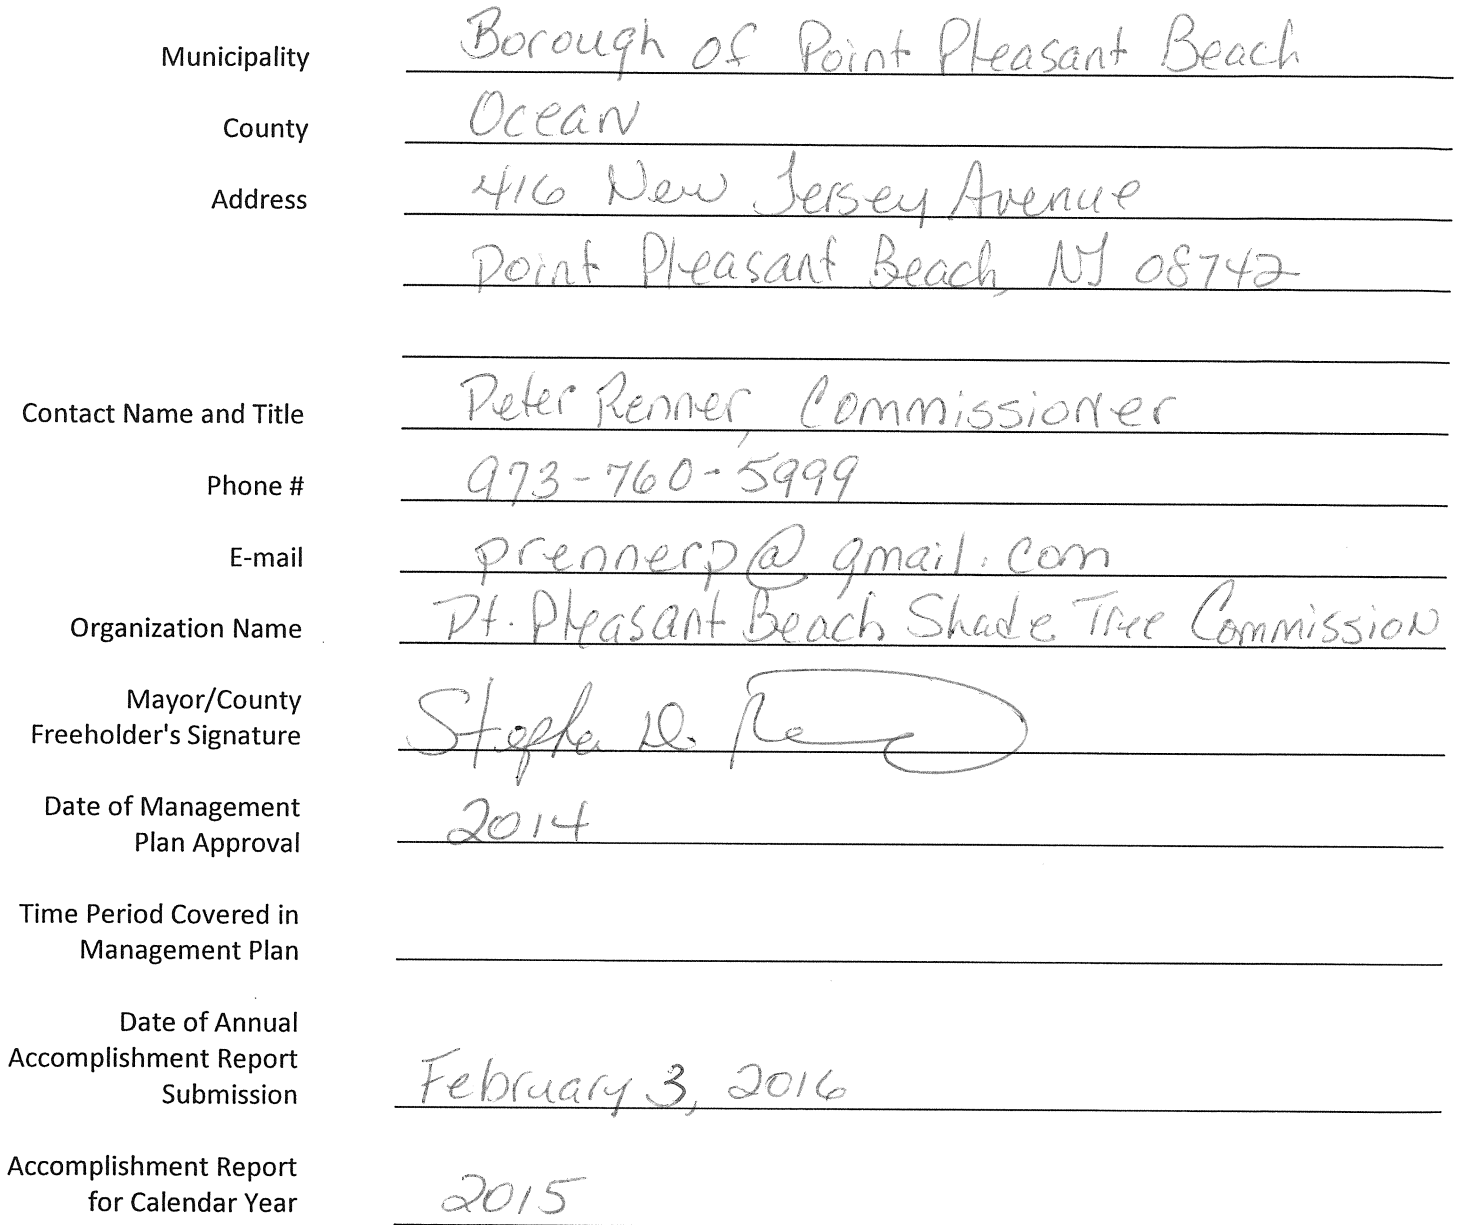 Municipality Borough of Point Pleasant Beach
County Ocean
Address 416 New Jersey Avenue
Point Pleasant Beach, NJ 08742
Contact Name and Title Peter Renner, Commissioner
Phone # 973-760-5999
E-mail prennerp@gmail.com
Organization Name Pt. Pleasant Beach Shade Tree Commission
Mayor/County
Freeholder's Signature Stephen D.
Date of Management
Plan Approval 2014
Time Period Covered in
Management Plan
Date of Annual
Accomplishment Report
Submission February 3, 2016
Accomplishment Report
for Calendar Year 2015